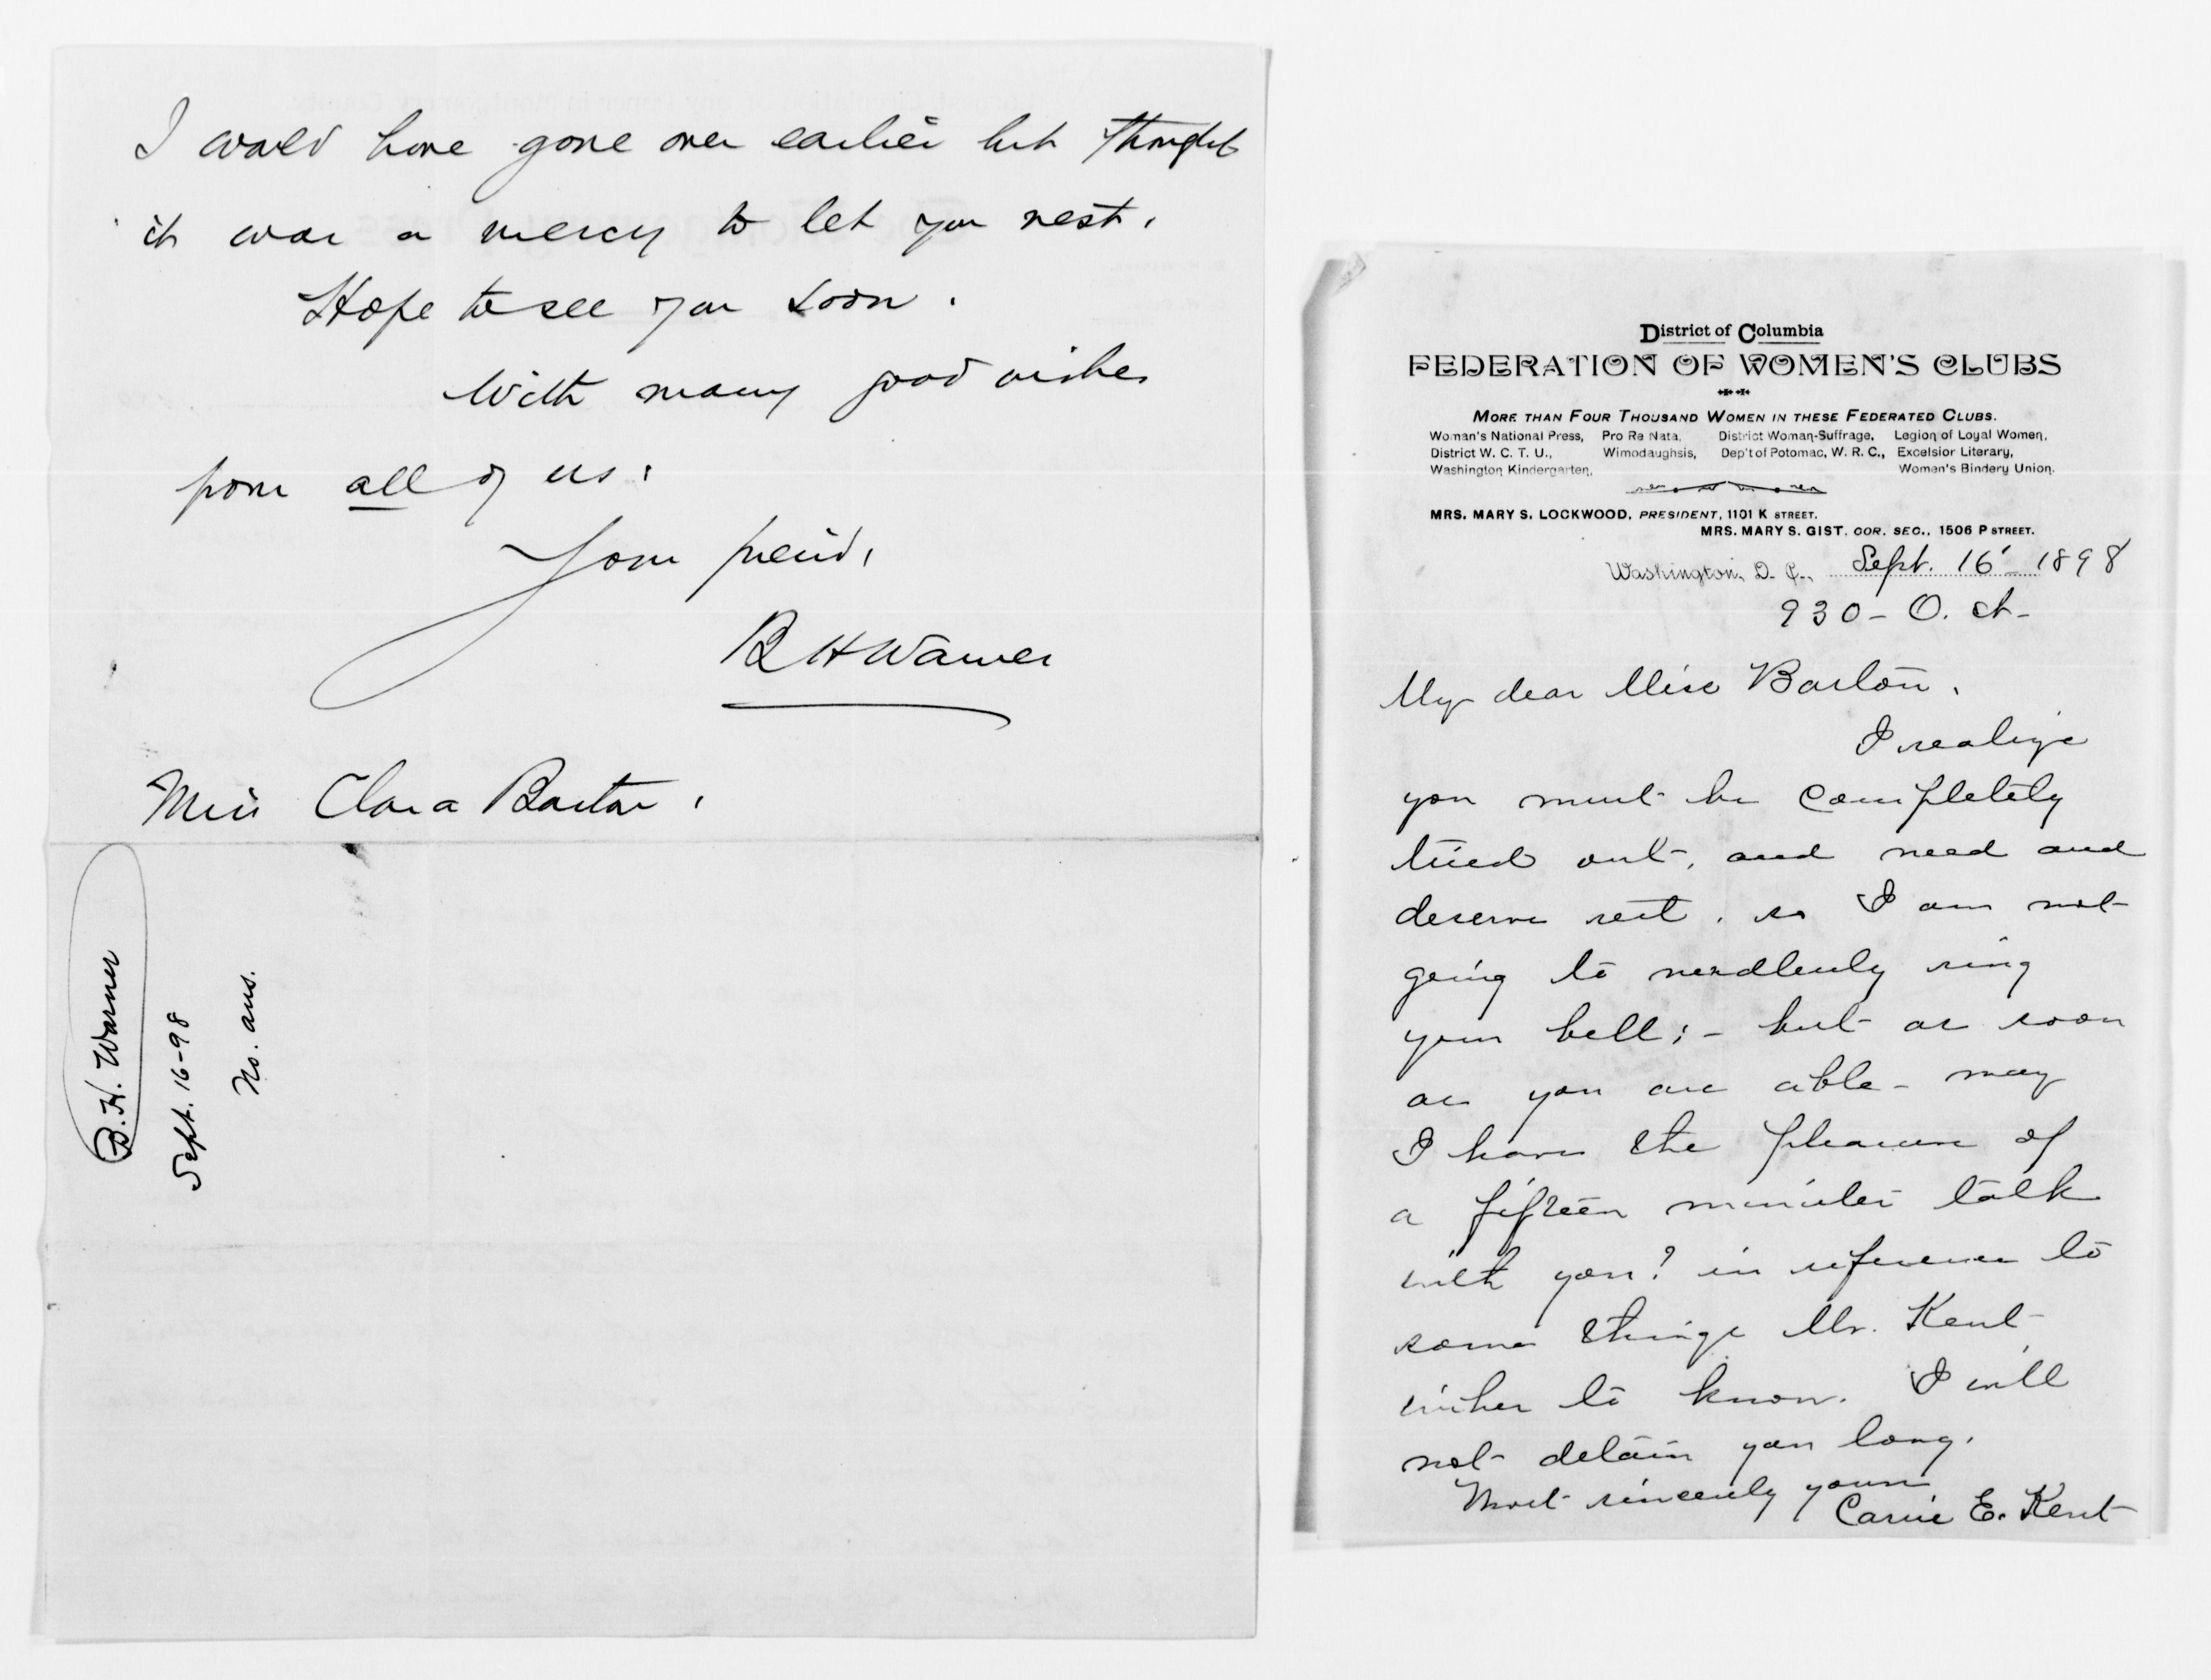 I would have gone over earlier but thought
it was a mercy to let you rest.
Hope to see you soon.
With many good wishes
from all of us.
Your friend,
B H Warner
Miss Clara Barton.
B. H. Warner
Sept. 16-98
No. ans.
District of Columbia
FEDERATION OF WOMEN'S CLUBS
MORE THAN FOUR THOUSAND WOMEN IN THESE FEDERATED CLUBS.
Woman's National Press, Pro Re Nata, District Woman-Suffrage, Legion of Loyal Women,
District W. C. T. U., Wimodaughsis, Dep't of Potomac, W. R. C., Excelsior Literary,
Washington Kindergarten, Women's Bindery Union.
MRS. MARY S. LOCKWOOD, PRESIDENT, 1101 K STREET.
MRS. MARY S. GIST, COR. SEC., 1506 P STREET.
Washington, D. C., Sept. 16' 1898
930 - O. st-
My dear Miss Barton.
I realize
you must be completely
tired out, and need and
deserve rest, so I am not
going to needlessly ring
your bell; - but as soon
as you are able - may
I have the pleasure of
a fifteen minutes talk
with you? in reference to
some things Mr. Kent
wishes to know. I will
not detain you long.
Most sincerely yours
Carrie E. Kent